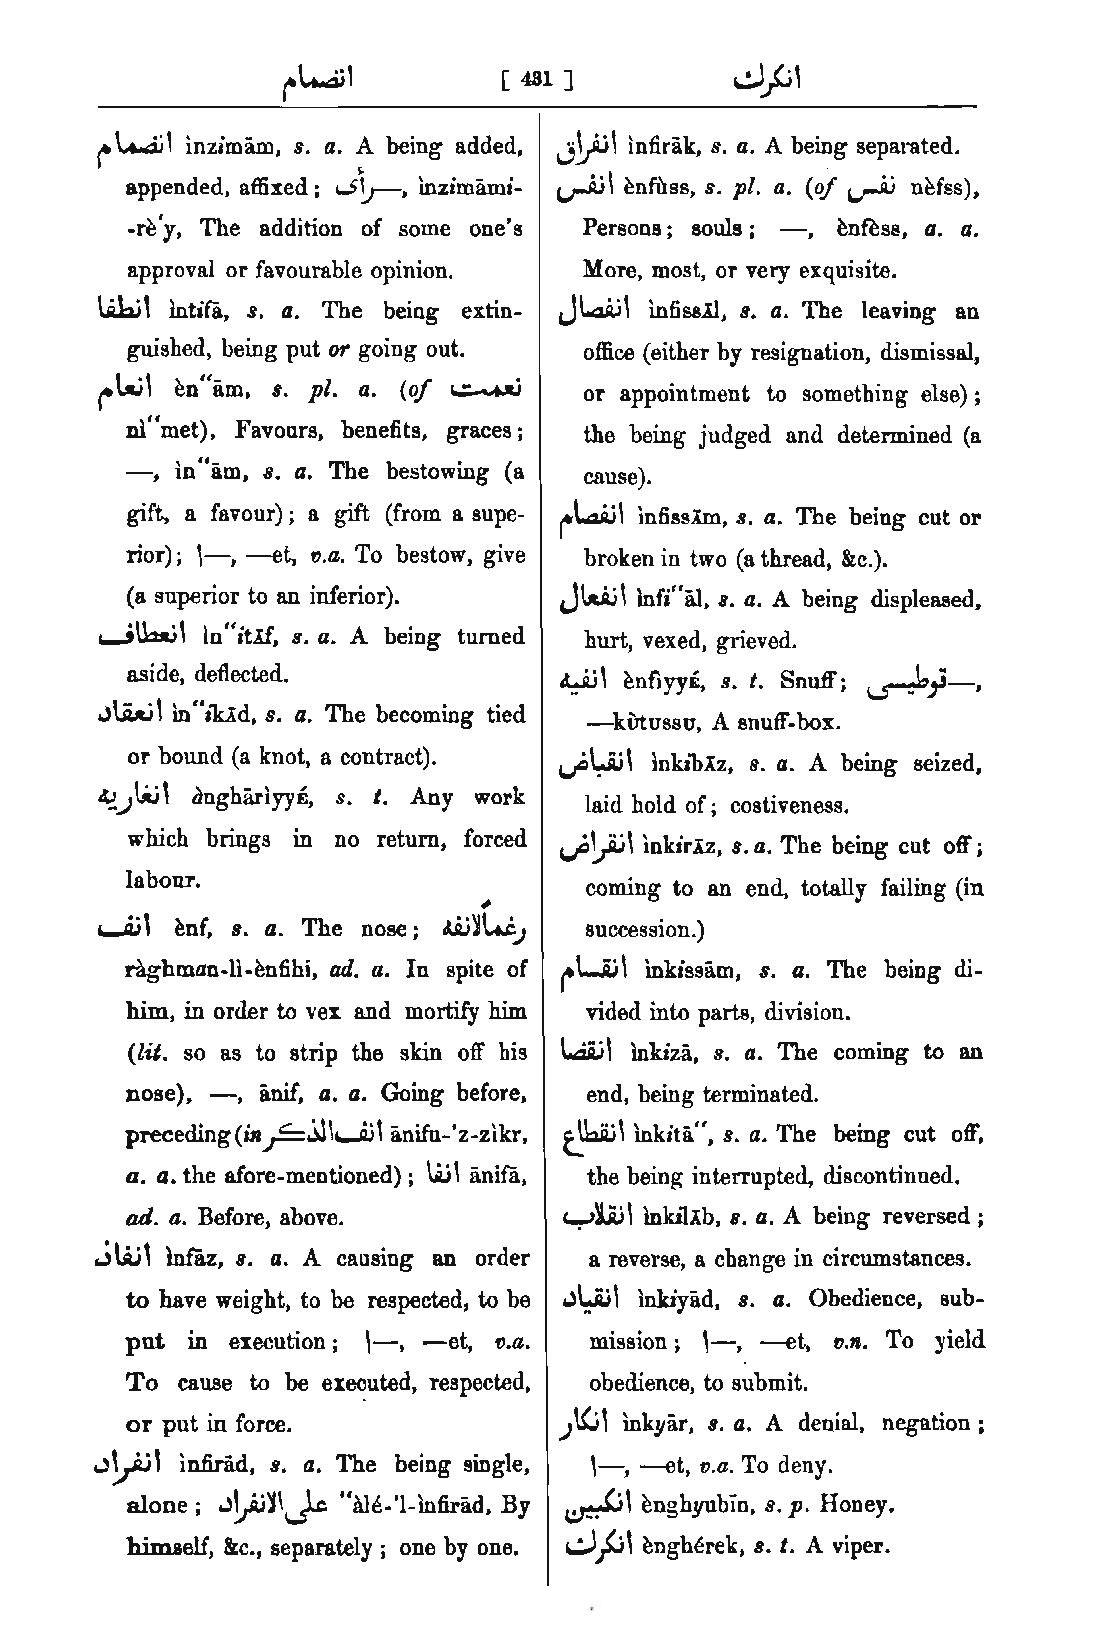 انضمام [ 431 ] انكرك
انضمام ìnzimām, s. a. A being added,
appended, affixed; رأى—, ìnzimāmi-
-rè'y, The addition of some one's
approval or favourable opinion.
انطفا ìntifā, s. a. The being extin-
guished, being put or going out.
انعام èn“ām, s. pl. a. (of نعمت
nì“met), Favours, benefits, graces;
—, in“ām, s. a. The bestowing (a
gift, a favour); a gift (from a supe-
rior); ا—, —et, v.a. To bestow, give
(a superior to an inferior).
انعطاف in“itāf, s. a. A being turned
aside, deflected.
انعقاد in“ikād, s. a. The becoming tied
or bound (a knot, a contract).
انغاريه ànghārìyyé, s. t. Any work
which brings in no return, forced
labour.
انف ènf, s. a. The nose; رغماً لانفه
ràghman-li-ènfihi, ad. a. In spite of
him, in order to vex and mortify him
(lit. so as to strip the skin off his
nose), —, ānif, a. a. Going before,
preceding (in انف الذكر ānifu-'z-zìkr,
a. a. the afore-mentioned); انفا ānifā,
ad. a. Before, above.
انفاذ ìnfāz, s. a. A causing an order
to have weight, to be respected, to be
put in execution; ا—, —et, v.a.
To cause to be executed, respected,
or put in force.
انفراد ìnfirād, s. a. The being single,
alone; على الانفراد “àlé-'l-ìnfirād, By
himself, &c., separately; one by one.
انفراق ìnfirāk, s. a. A being separated.
انفس ènfùss, s. pl. a. (of نفس nèfss),
Persons; souls; —, ènfèss, a. a.
More, most, or very exquisite.
انفصال ìnfissāl, s. a. The leaving an
office (either by resignation, dismissal,
or appointment to something else);
the being judged and determined (a
cause).
انفصام ìnfissām, s. a. The being cut or
broken in two (a thread, &c.).
انفعال ìnfi“āl, s. a. A being displeased,
hurt, vexed, grieved.
انفيه ènfìyyé, s. t. Snuff; قوطيسى—,
—kùtussu, A snuff-box.
انقباض ìnkibāz, s. a. A being seized,
laid hold of; costiveness.
انقراض ìnkirāz, s. a. The being cut off;
coming to an end, totally failing (in
succession.)
انقسام ìnkissām, s. a. The being di-
vided into parts, division.
انقضا ìnkizā, s. a. The coming to an
end, being terminated.
انقطاع ìnkitā“, s. a. The being cut off,
the being interrupted, discontinued.
انقلاب ìnkilāb, s. a. A being reversed;
a reverse, a change in circumstances.
انقياد ìnkiyād, s. a. Obedience, sub-
mission; ا—, —et, v.n. To yield
obedience, to submit.
انكار ìnkyār, s. a. A denial, negation;
ا—, —et, v.a. To deny.
انكبين ènghyubīn, s. p. Honey.
انكرك ènghérek, s. t. A viper.